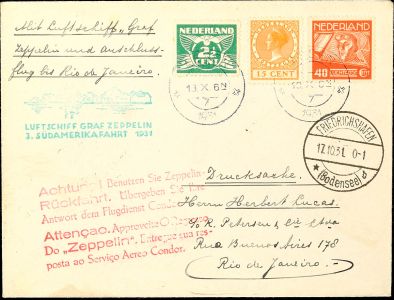 Mit Luftschiff „Graf
Zeppelin und Anschluss-
flug bis Rio de Janeiro.
NEDERLAND
2½
CENT
15 CENT
NEDERLAND
40
13 X 6N
7
1931
LUFTSCHIFF GRAF ZEPPELIN
3. SÜDAMERIKAFAHRT 1931
FRIEDRICHSHAFEN
17.10.31. 0-1
(Bodensee)
Achtung! Benutzen Sie Zeppelin
Rückfahrt. Übergeben Sie Ihre
Antwort dem Flugdienst Condor
Attenção. Approveite O Regresso
Do „Zeppelin". Entregue sua res-
posta ao Serviço Aereo Condor.
Drucksache.
Herrn Herbert Lucas.
c/o R. Petersen & Cia Ltda
Rua Buenos Aires 178
Rio de Janeiro.-